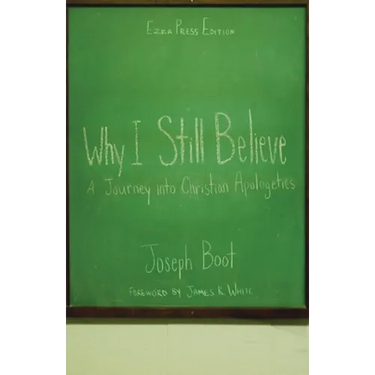 Ezra Press Edition
Why I Still Believe
A Journey into Christian Apologetics
Joseph Boot
Foreword by James R. White